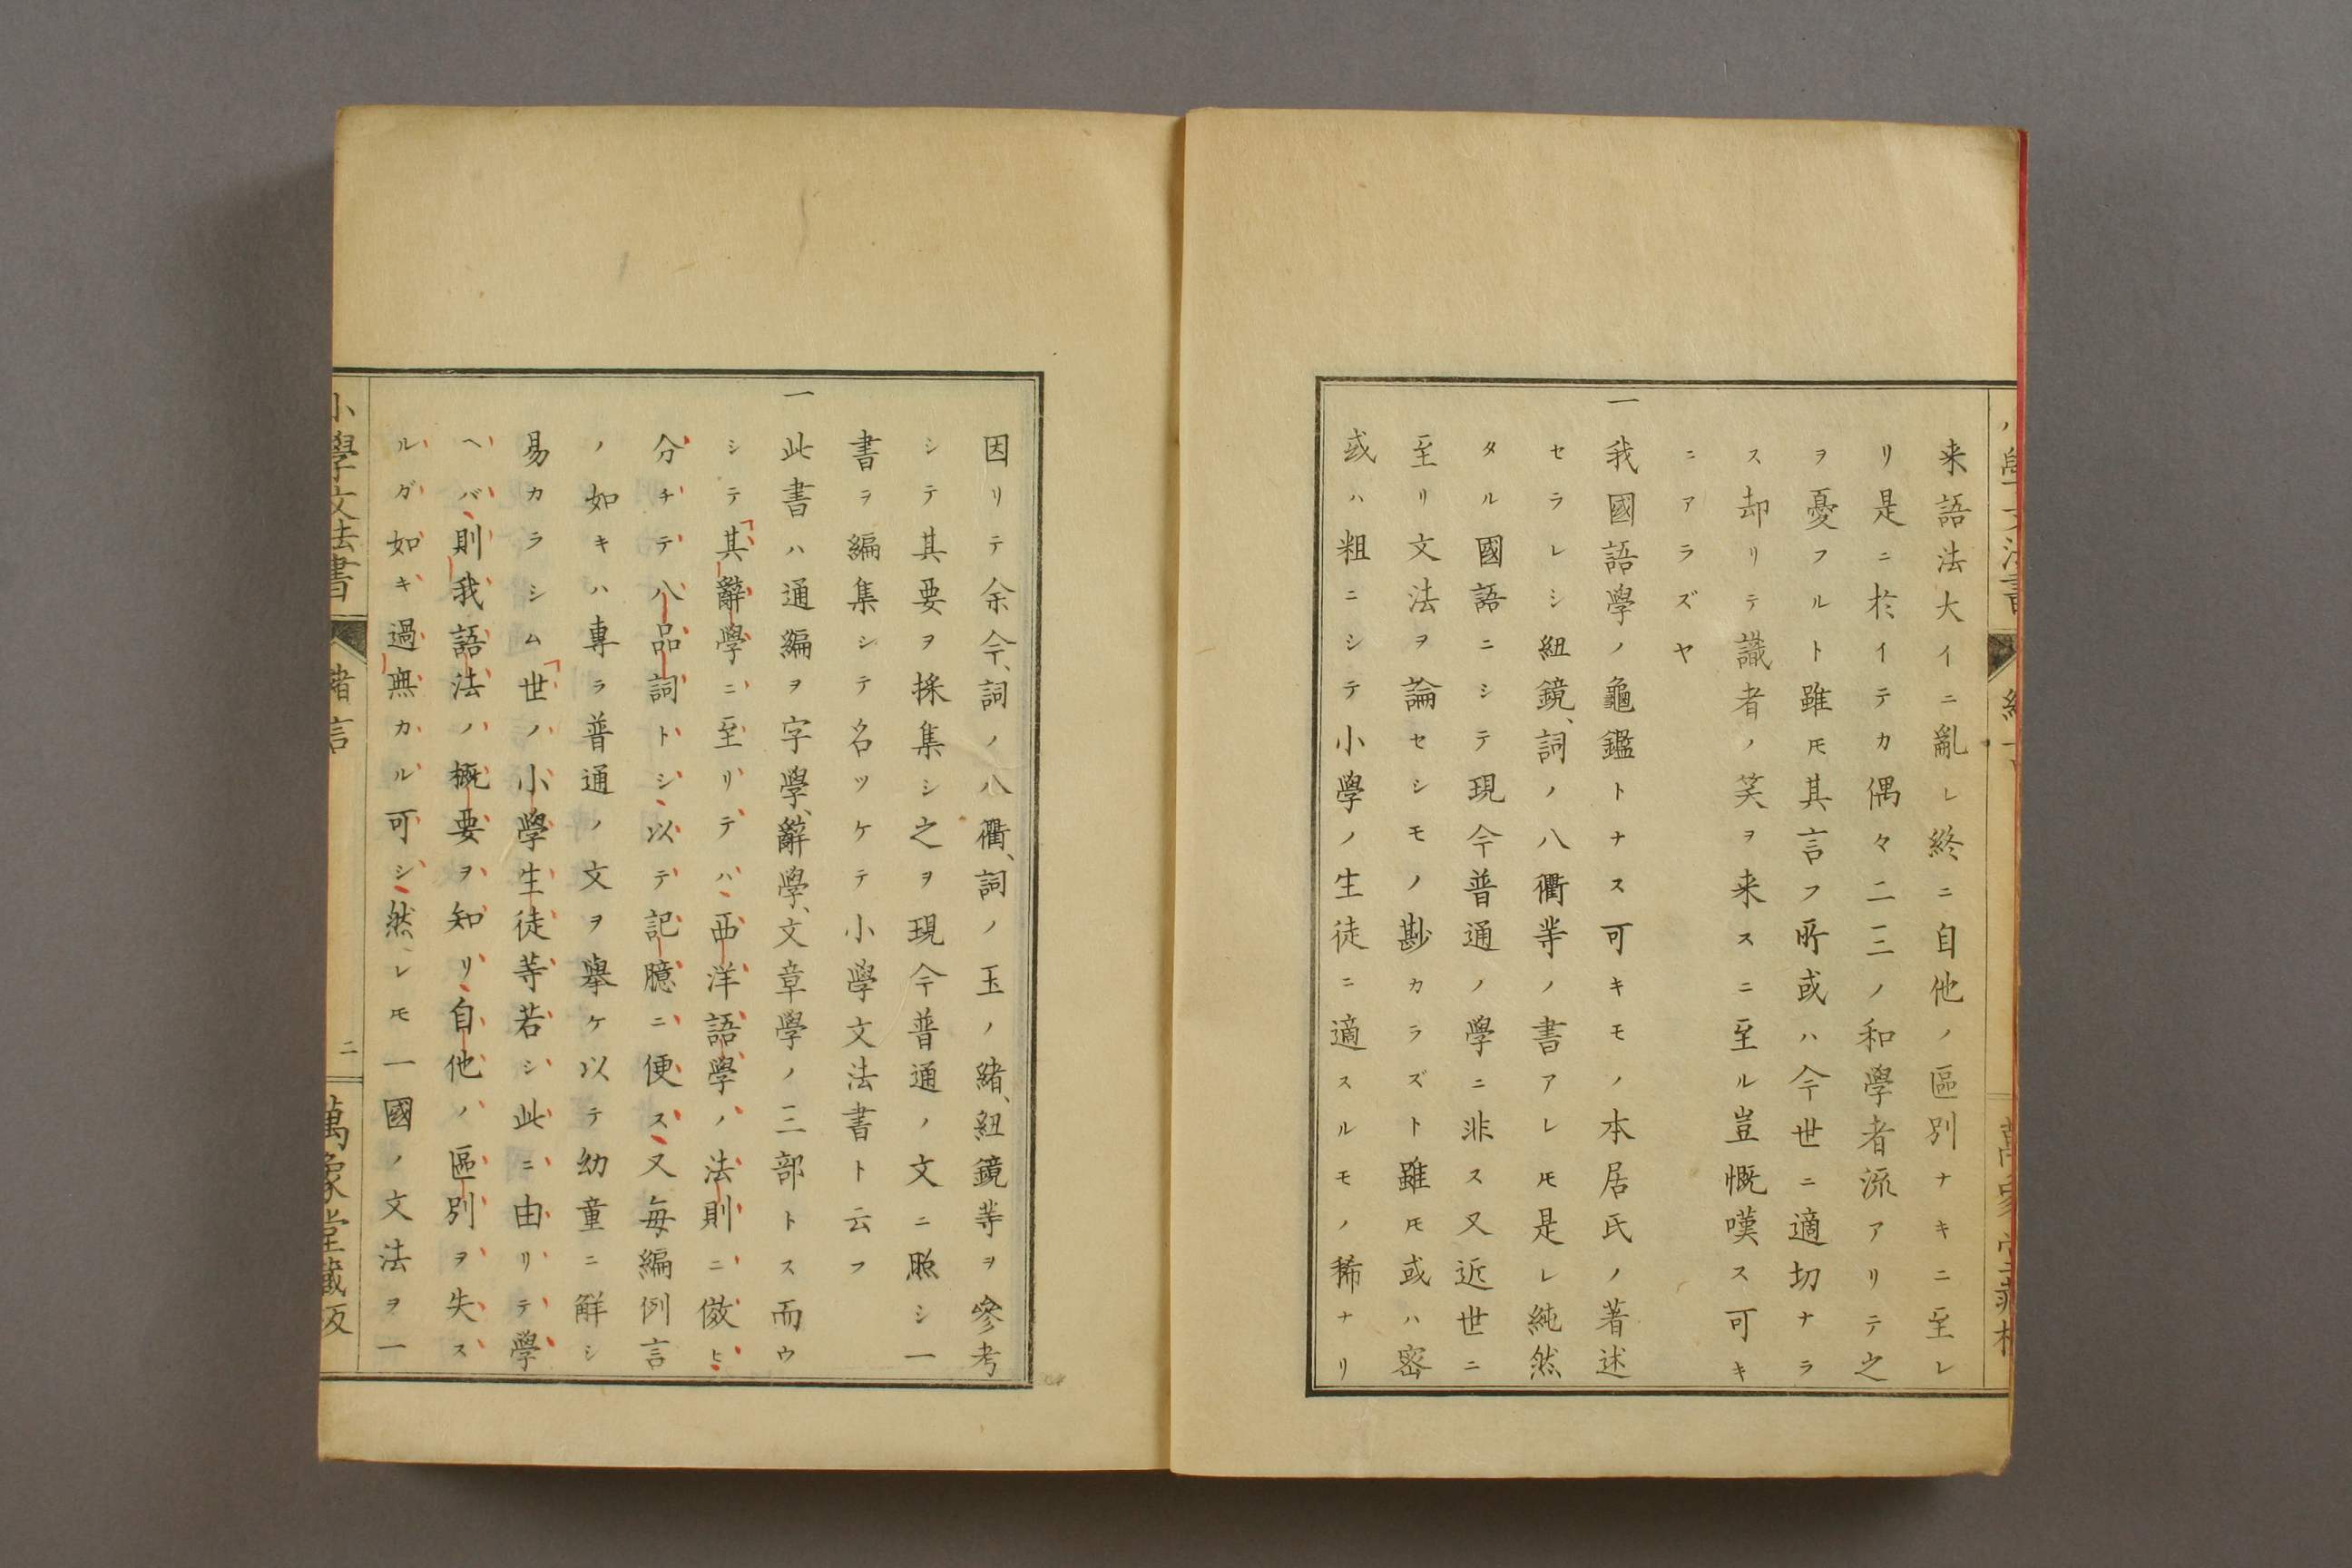 来語法大イニ亂レ終ニ自他ノ區別ナキニ至レ
リ是ニ於イテカ偶々二三ノ和學者流アリテ之
ヲ憂フルト雖𪜈其言フ所或ハ今世ニ適切ナラ
ス却リテ識者ノ笑ヲ来スニ至ル豈慨嘆ス可キ
ニアラズヤ
一我國語學ノ龜鑑トナス可キモノ本居氏ノ著述
セラレシ紐鏡、詞ノ八衢等ノ書アレ𪜈是レ純然
タル國語ニシテ現今普通ノ學ニ非ス又近世ニ
至リ文法ヲ論セシモノ尠カラズト雖𪜈或ハ密
或ハ粗ニシテ小學ノ生徒ニ適スルモノ稀ナリ
因リテ余今、詞ノ八衢、詞ノ玉ノ緒、紐鏡等ヲ參考
シテ其要ヲ採集シ之ヲ現今普通ノ文ニ照シ一
書ヲ編集シテ名ツケテ小學文法書ト云フ
一此書ハ通編ヲ字學、辭學、文章學ノ三部トス而ウ
シテ「其辭學ニ至リテハ、西洋語學ノ法則ニ傚ヒ、
分チテ八品詞トシ、以テ記臆ニ便ス、又毎編例言
ノ如キハ專ラ普通ノ文ヲ擧ケ以テ幼童ニ解シ
易カラシム「世ノ小學生徒等若シ此ニ由リテ學
ヘバ、則我語法ノ概要ヲ知リ、自他ノ區別ヲ失ス
ルガ如キ過無カル可シ、然レ𪜈一國ノ文法ヲ一
小學文法書 緒言 二 萬象堂藏版